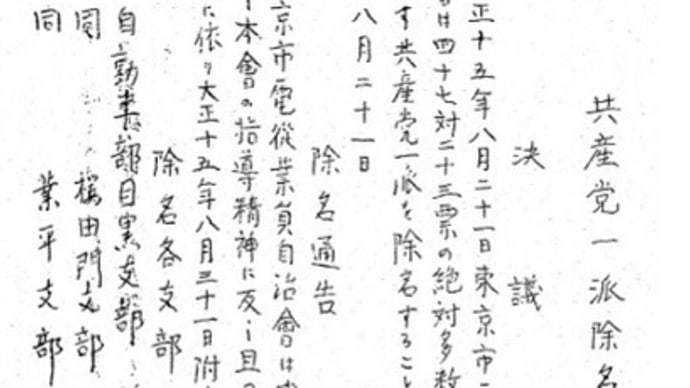 共産党一派除名
決議
正十五年八月二十一日東京市
は四十七対二十三票の絶対多数
す共産党一派を除名すること
八月二十一日
除名通告
京市電従業員自治會は
本會の指導精神に反し且つ
に依り大正十五年八月三十一日附
除名各支部
自動車部目黒支部
同 桜田門支部
同 業平支部